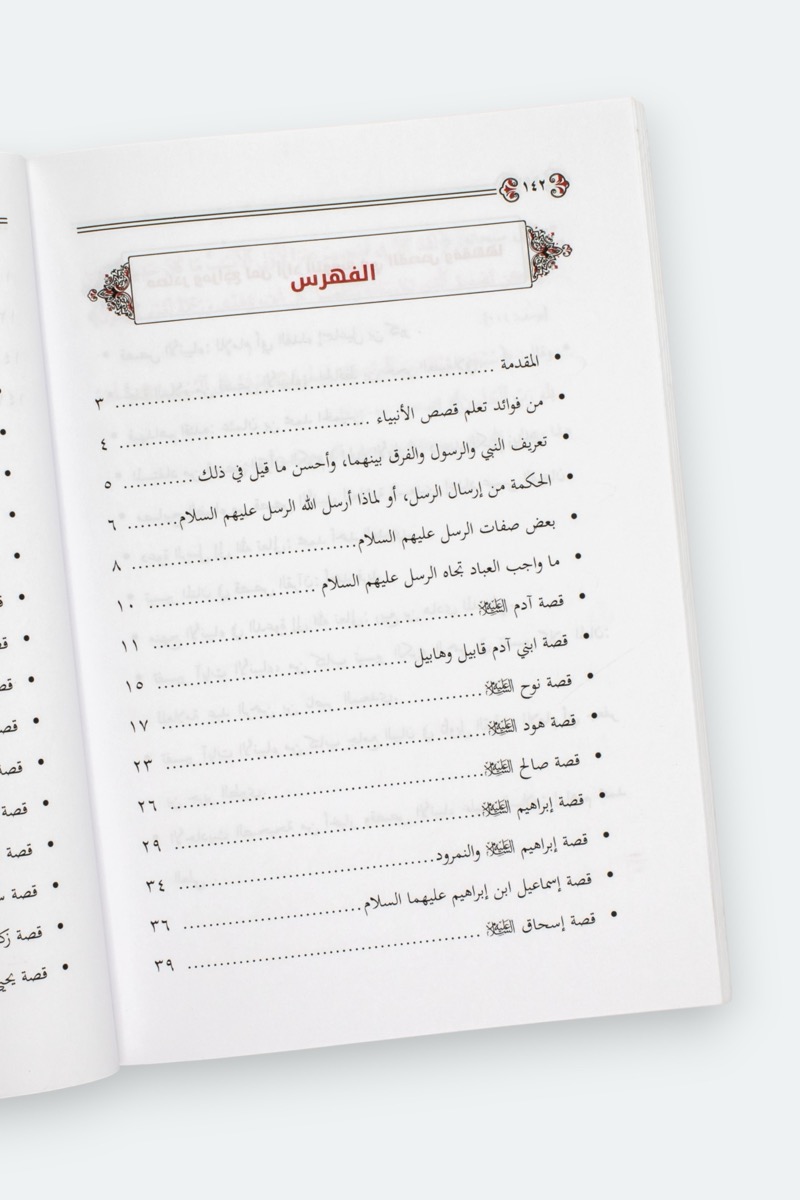 ١٤٢
الفهرس
• المقدمة ........ ٣
• من فوائد تعلم قصص الأنبياء ........ ٤
• تعريف النبي والرسول والفرق بينهما، وأحسن ما قيل في ذلك ........ ٥
• الحكمة من إرسال الرسل، أو لماذا أرسل الله الرسل عليهم السلام ........ ٦
• بعض صفات الرسل عليهم السلام ........ ٨
• ما واجب العباد تجاه الرسل عليهم السلام ........ ١٠
• قصة آدم عليه السلام ........ ١١
• قصة ابني آدم قابيل وهابيل ........ ١٥
• قصة نوح عليه السلام ........ ١٧
• قصة هود عليه السلام ........ ٢٣
• قصة صالح عليه السلام ........ ٢٦
• قصة إبراهيم عليه السلام ........ ٢٩
• قصة إبراهيم عليه السلام والنمرود ........ ٣٤
• قصة إسماعيل ابن إبراهيم عليهما السلام ........ ٣٦
• قصة إسحاق عليه السلام ........ ٣٩
قصة
قصة
قصة
قصة
قصة يحيى